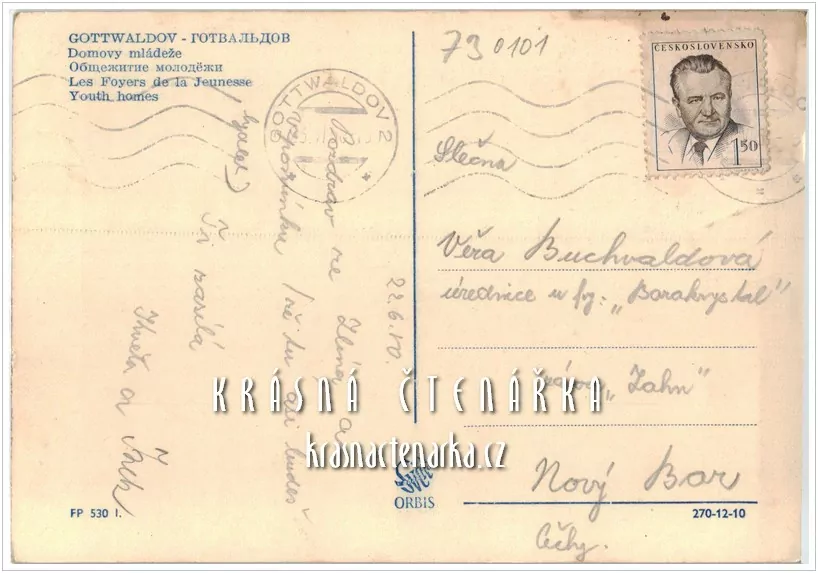 GOTTWALDOV - ГОТВАЛЬДОВ
Domovy mládeže
Общежитие молодёжи
Les Foyers de la Jeunesse
Youth homes
730101
ČESKOSLOVENSKO
1.50
GOTTWALDOV 2
22.6.50.
Pozdrav ze Zlína a
vzpomínku že tu
Ti zasílá
Květa a
Slečna
Věra Buchvaldová
úřednice u fy: „Borokrystal"
závod „Zahn"
Nový Bor
Čechy.
KRÁSNÁ ČTENÁŘKA
krasnactenarka.cz
ORBIS
FP 530 I.
270-12-10